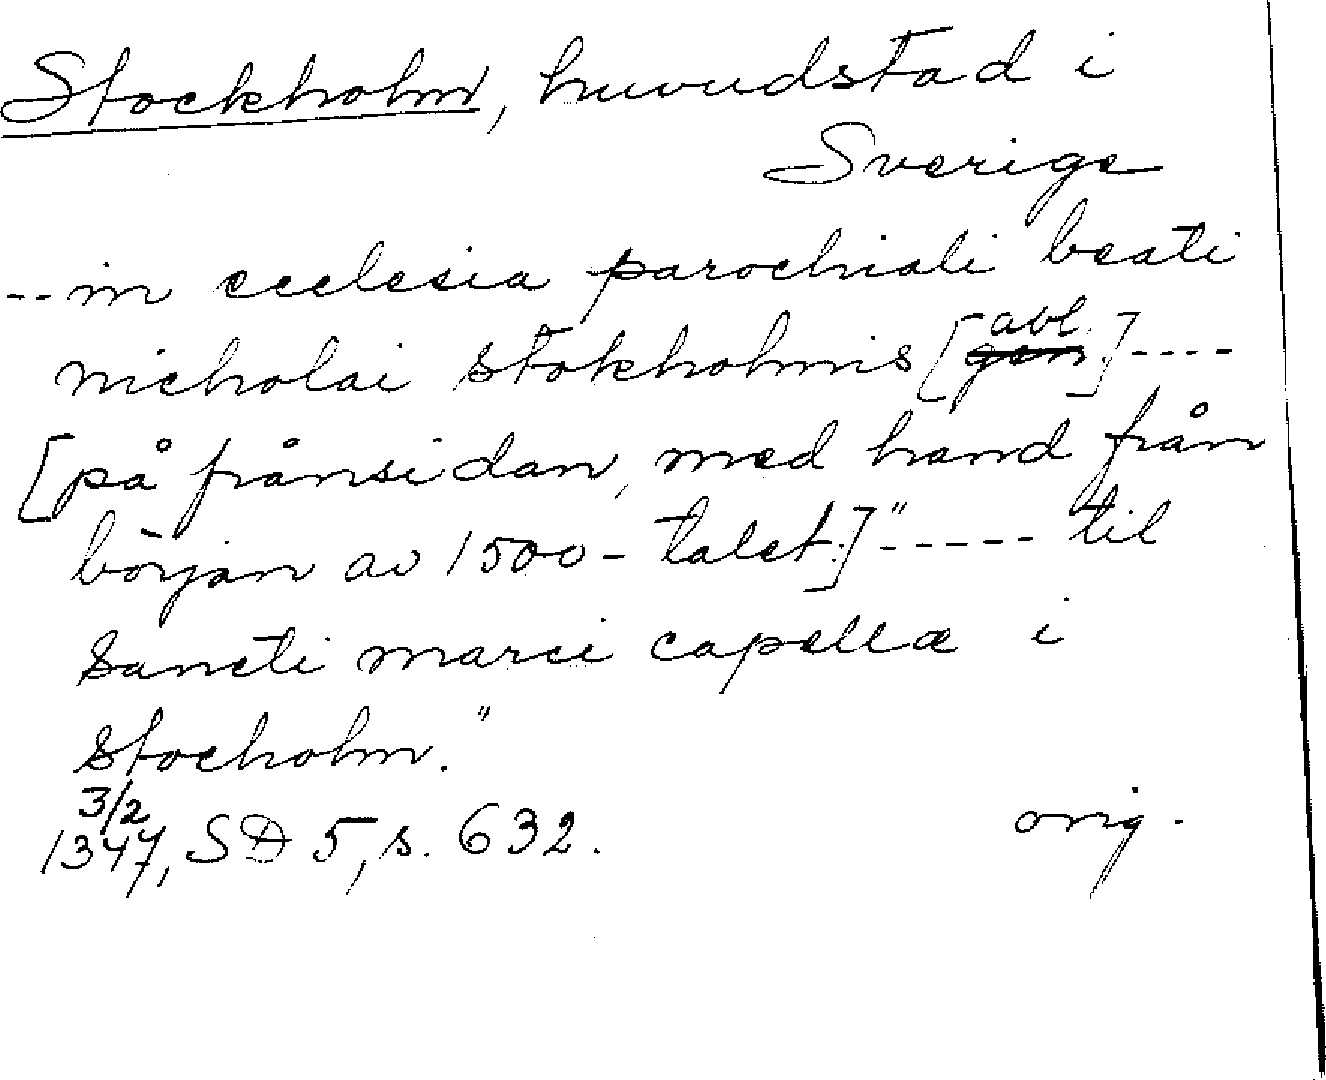 Stockholm, huvudstad i
Sverige
-- in ecclesia parochiali beati
nicholai stokholmis [abl. gen.] ----
[på frånsidan, med hand från
början av 1500-talet:] "----- til
Sancti marci capellæ i
stocholm."
3/2
1347, SD 5, s. 632. orig.